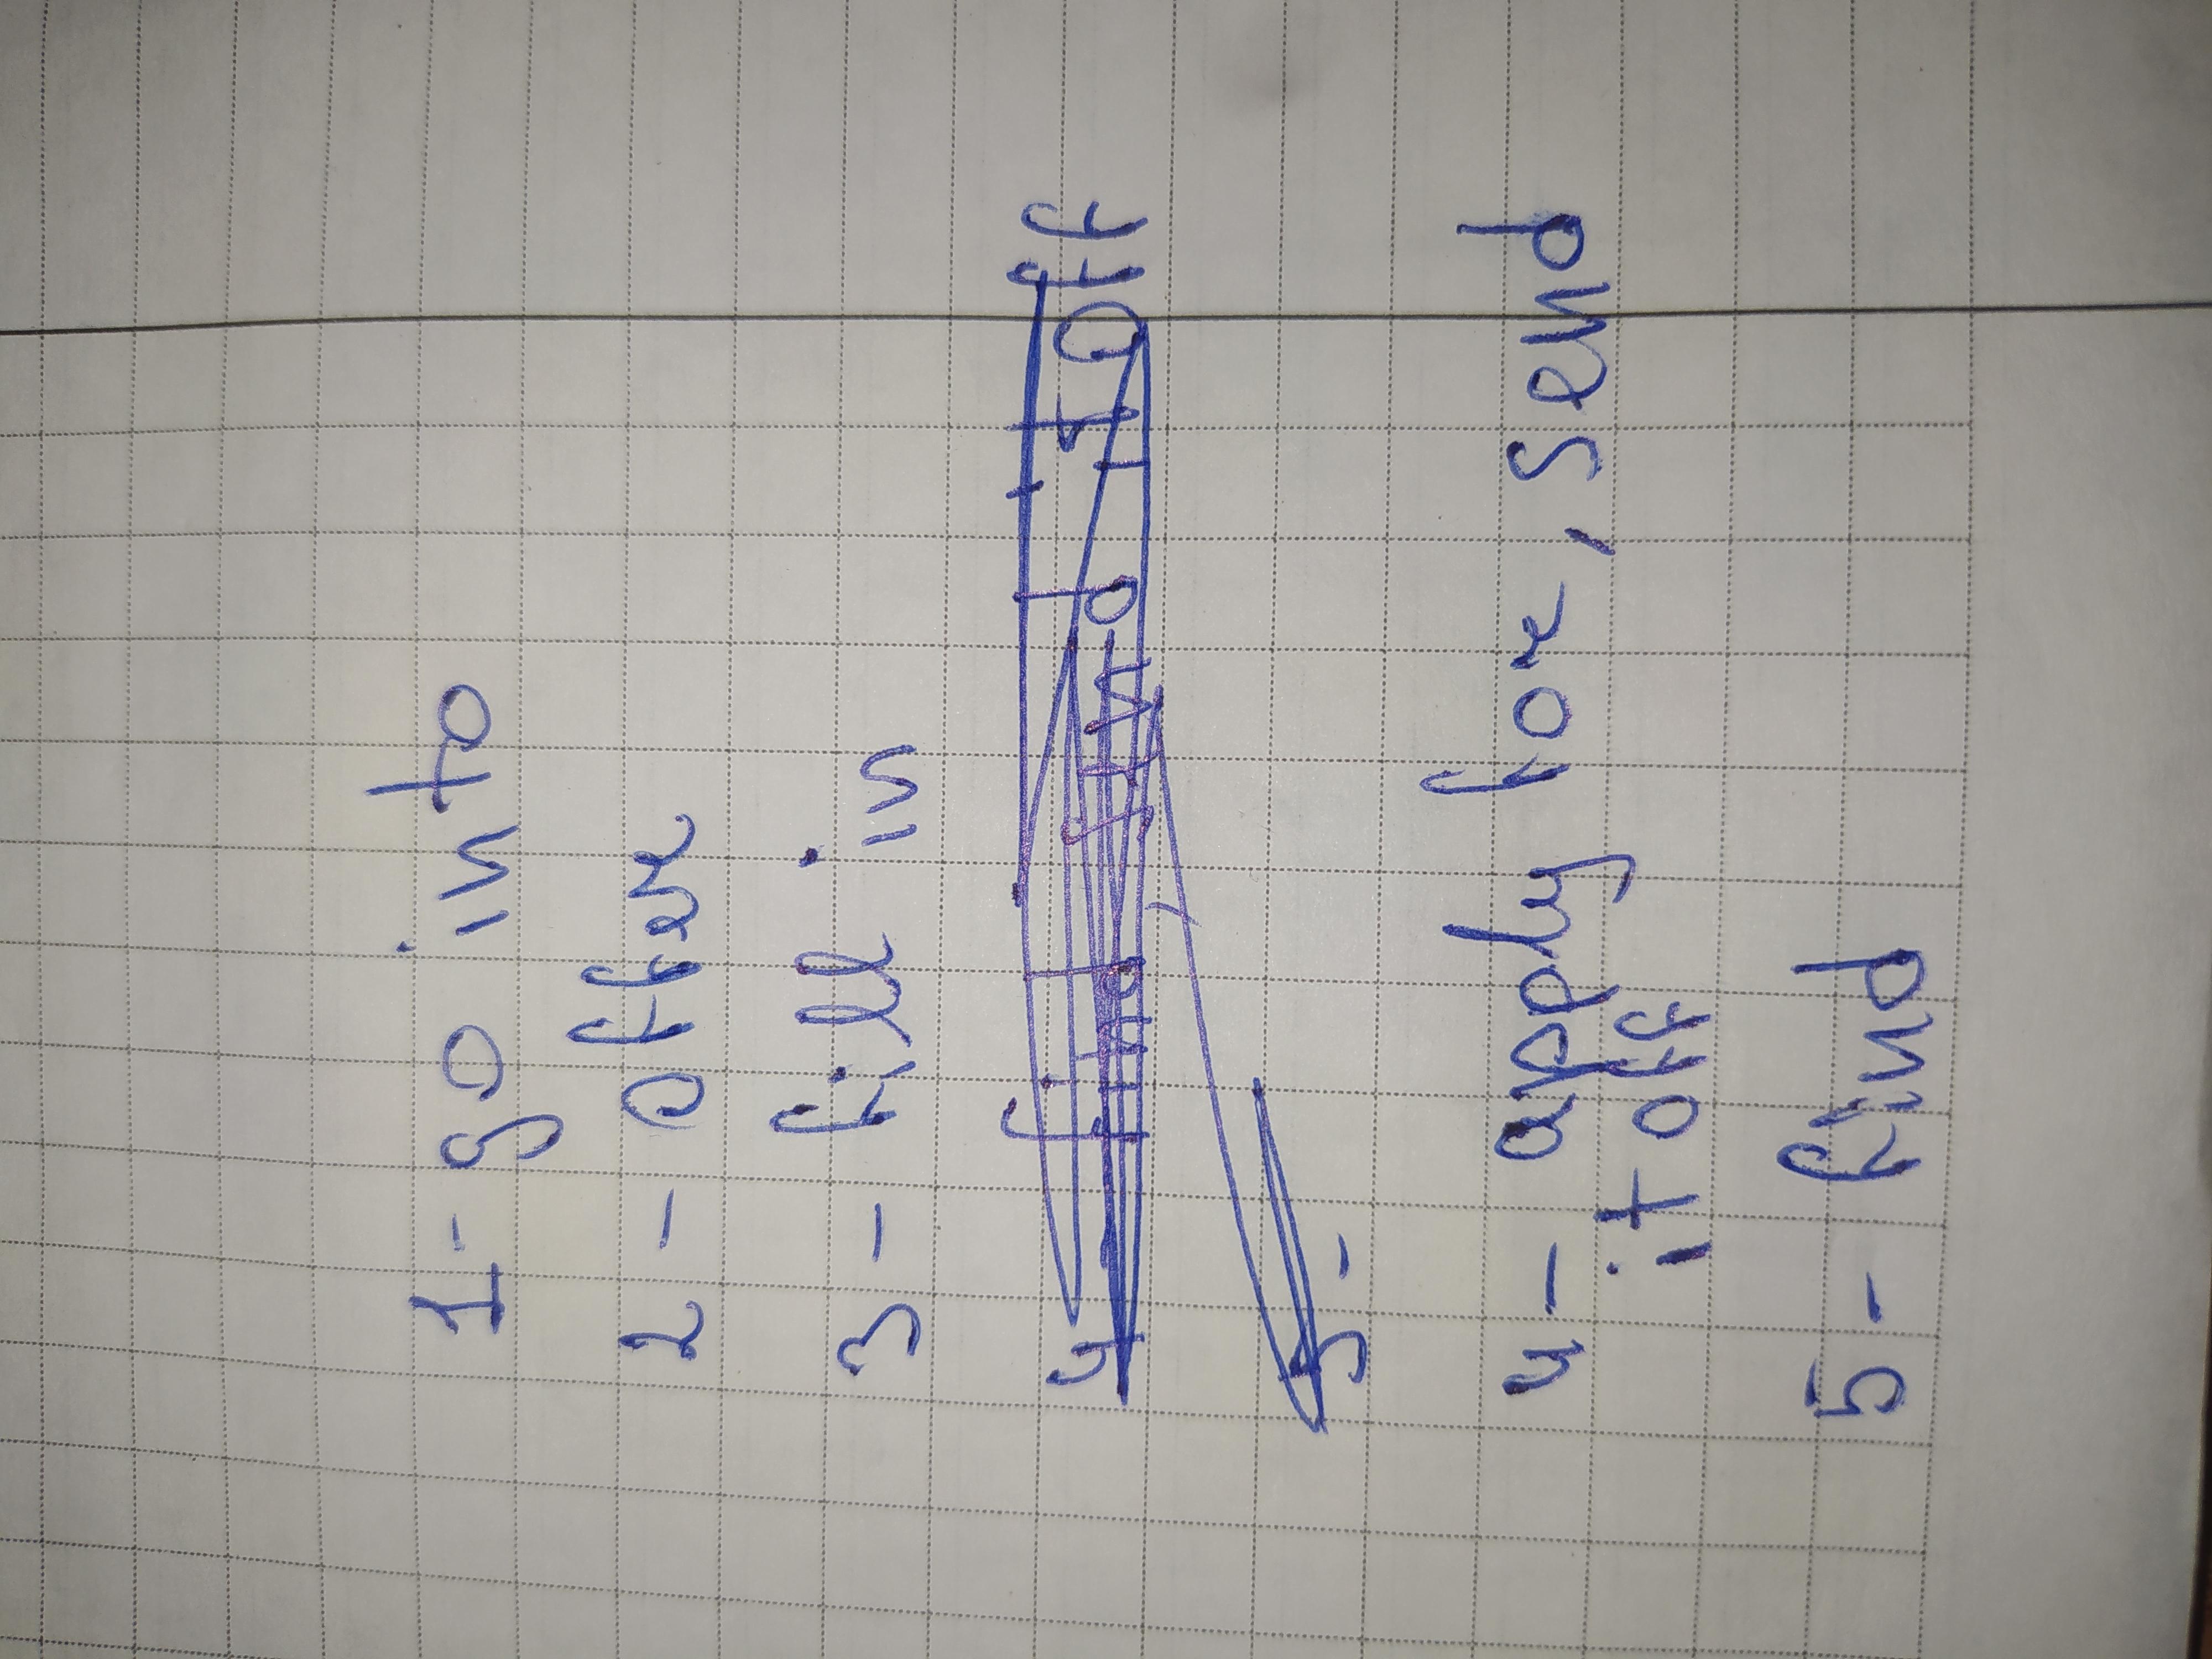 1- go into
2- offer
3- fill in
4
5-
4- apply for, send
it off
5- find